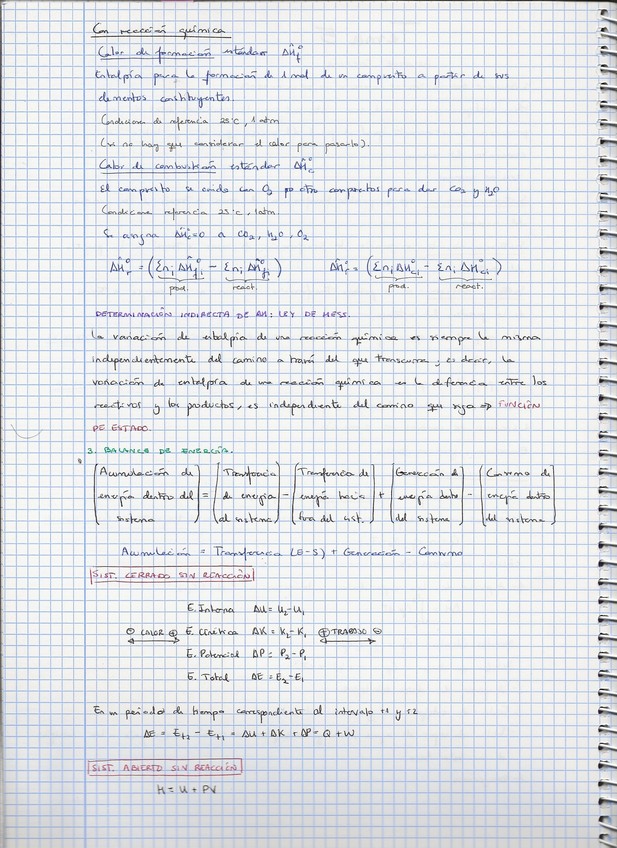 Con reacción química
Calor de formación estándar ΔĤ°f
Entalpía para la formación de 1 mol de un compuesto a partir de sus
elementos constituyentes.
Condiciones de referencia 25°C, 1 atm
(si no hay que considerar el calor para pasarlo).
Calor de combustión estándar ΔĤ°c
El compuesto se oxida con O2 po otro compuestos para dar CO2 y H2O
Condiciones referencia 25°C, 1atm
Se asigna ΔĤ°c=0 a CO2, H2O, O2
ΔĤ°r = (Σni ΔĤ°fi - Σni ΔĤ°fi) ΔĤ°r = (Σni ΔĤ°ci - Σni ΔĤ°ci)
prod. react. prod. react.
DETERMINACIÓN INDIRECTA DE ΔH: LEY DE HESS.
La variación de entalpía de una reacción química es siempre la misma
independientemente del camino a través del que transcurra, es decir, la
variación de entalpía de una reacción química es la diferencia entre los
reactivos y los productos, es independiente del camino que siga => FUNCIÓN
DE ESTADO.
3. BALANCE DE ENERGÍA.
[Acumulación de] [Transferencia] [Transferencia de] [Generación de] [Consumo de]
[energía dentro del] = [de energía] - [energía hacia] + [energía dentro] - [energía dentro]
[sistema] [al sistema] [fuera del sist.] [del sistema] [del sistema]
Acumulación = Transferencia (E-S) + Generación - Consumo
SIST. CERRADO SIN REACCIÓN
E. Interna ΔU = U2-U1
⊖ CALOR ⊕ E. Cinética ΔK = K2-K1 ⊕ TRABAJO ⊖
E. Potencial ΔP = P2-P1
E. Total ΔE = E2-E1
En un periodo de tiempo correspondiente al intervalo t1 y t2
ΔE = Et2 - Et1 = ΔU + ΔK + ΔP = Q + W
SIST. ABIERTO SIN REACCIÓN
H = U + PV